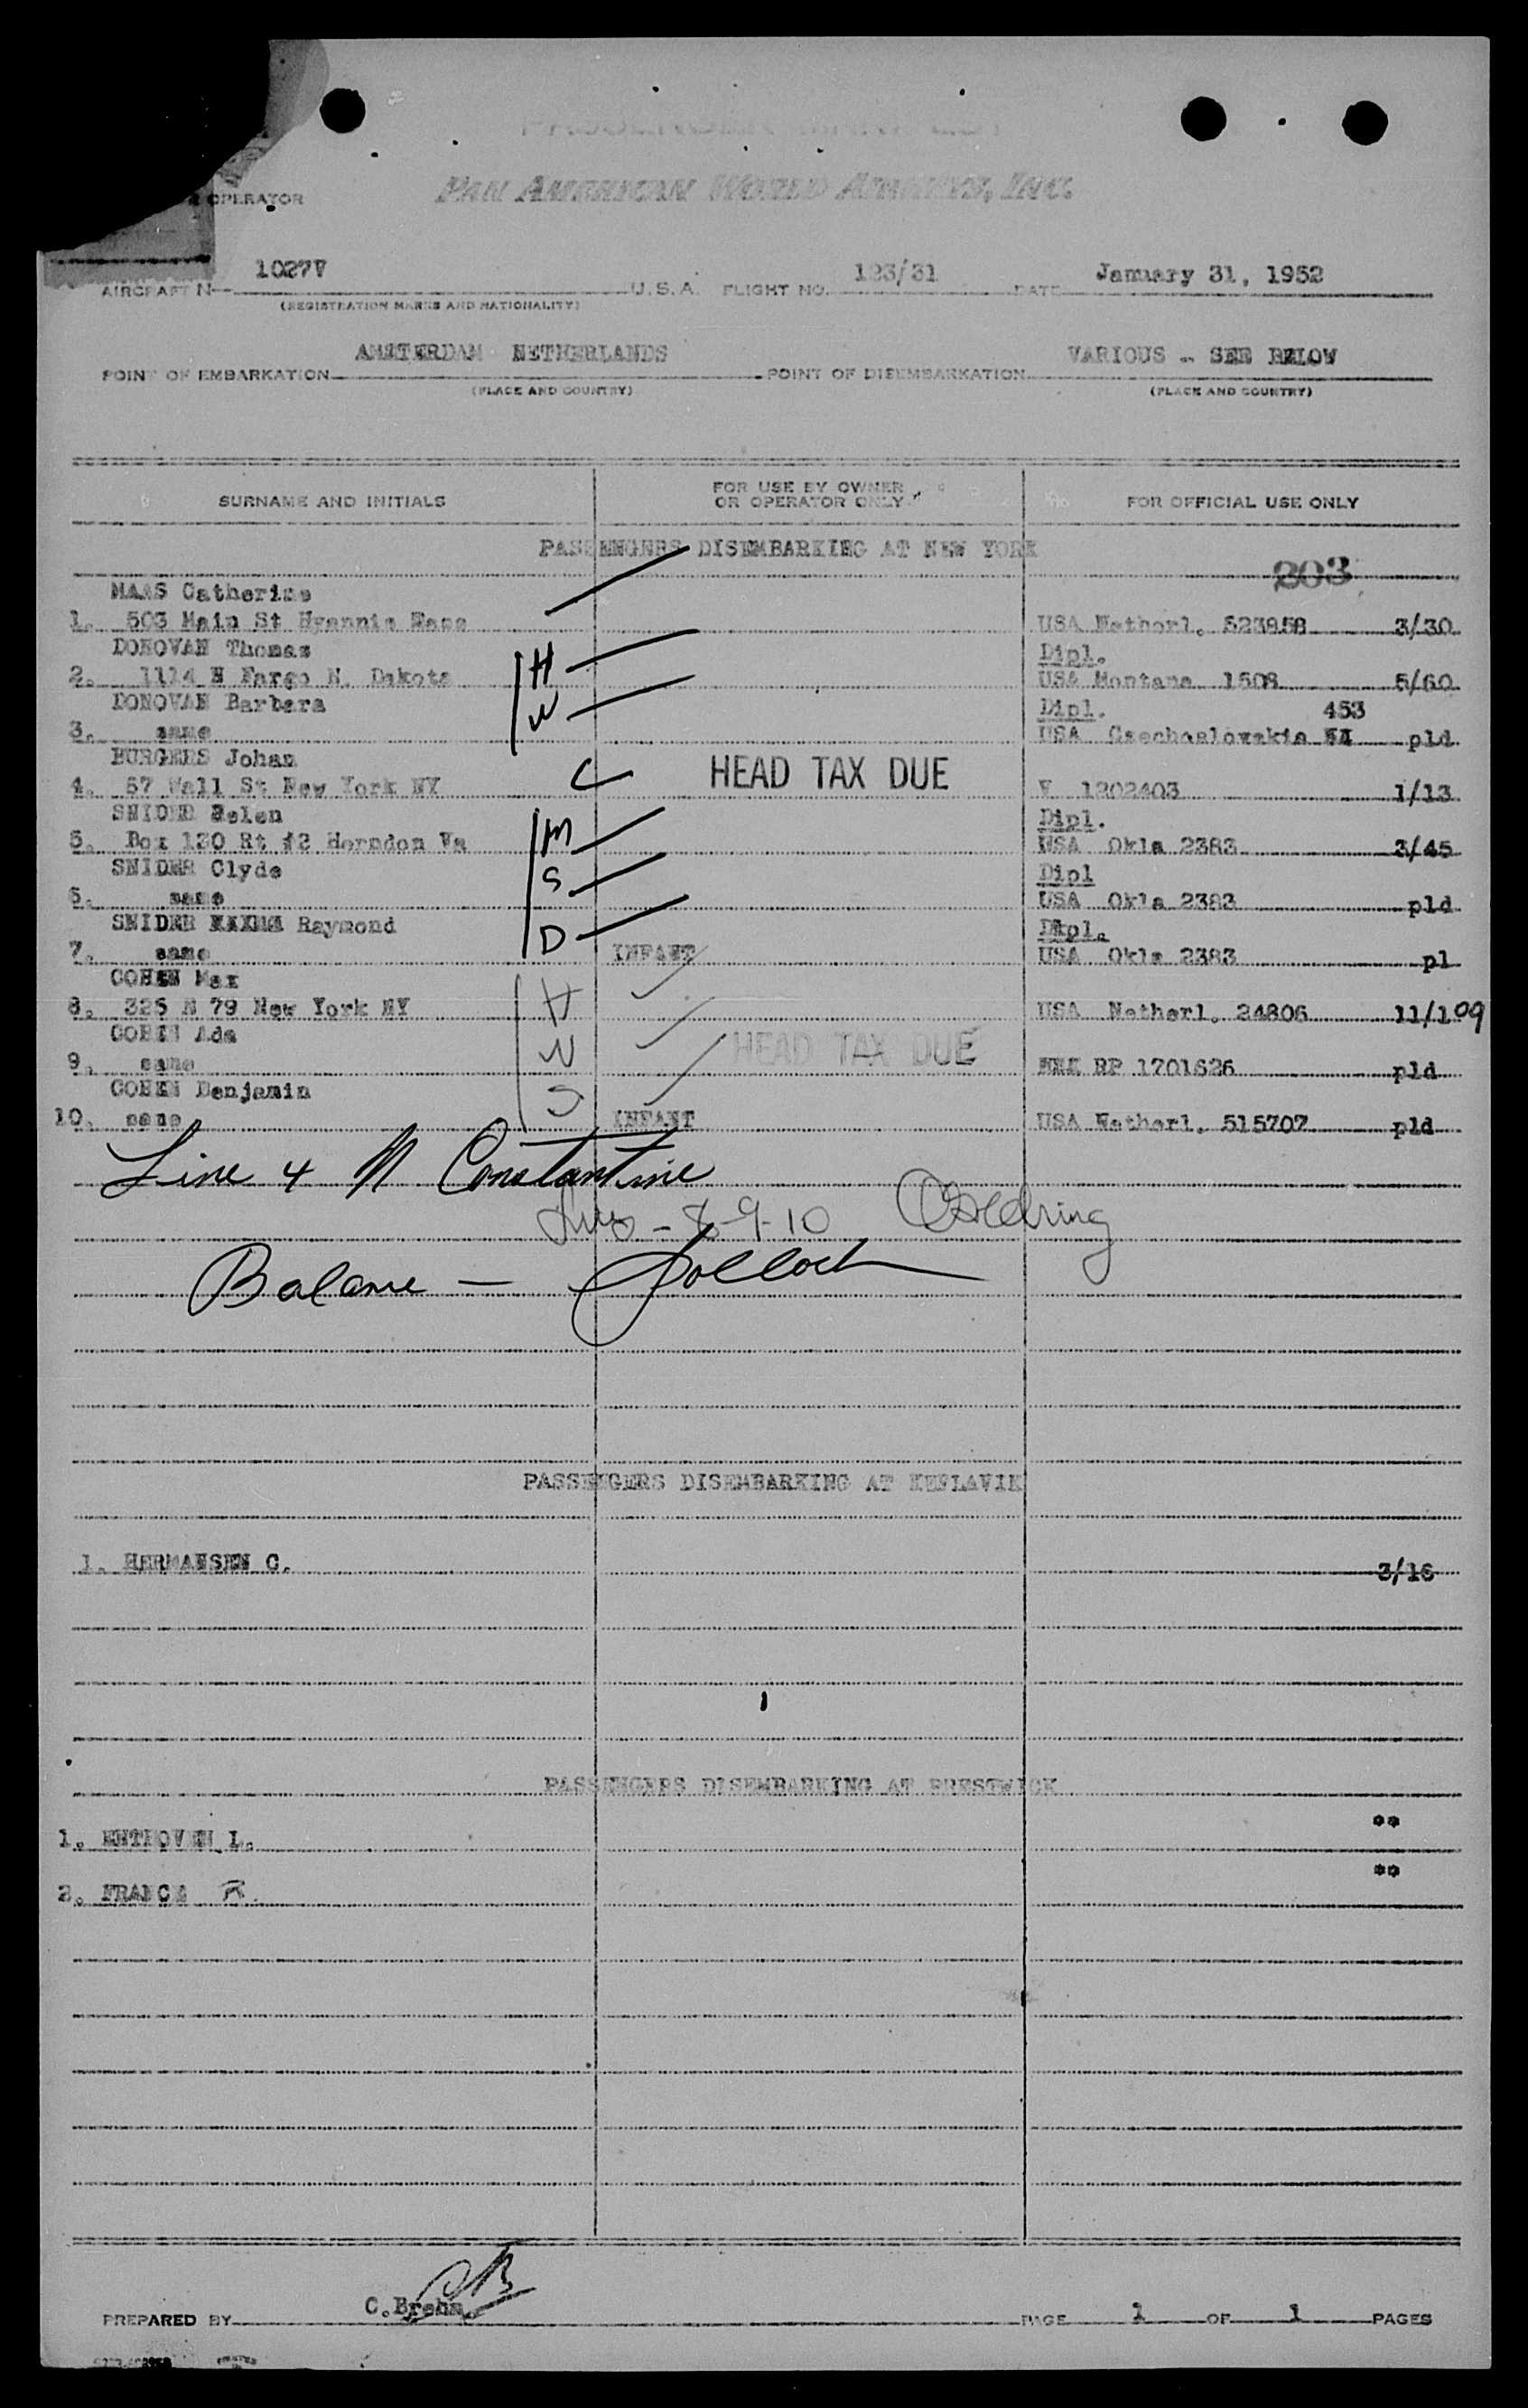 OPERATOR
PAN AMERICAN WORLD AIRWAYS, INC.
AIRCRAFT N- 1027V U.S.A. FLIGHT NO. 123/31 DATE January 31, 1952
(REGISTRATION MARKS AND NATIONALITY)
POINT OF EMBARKATION AMSTERDAM NETHERLANDS POINT OF DISEMBARKATION VARIOUS - SEE BELOW
(PLACE AND COUNTRY) (PLACE AND COUNTRY)
SURNAME AND INITIALS FOR USE BY OWNER OR OPERATOR ONLY FOR OFFICIAL USE ONLY
PASSENGERS DISEMBARKING AT NEW YORK
203
MAAS Catherine
1. 503 Main St Hyannis Mass USA Netherl. 523858 3/30
DONOVAN Thomas H Dipl.
2. 1114 N Fargo N. Dakota USA Montana 1508 5/60
DONOVAN Barbara W Dipl. 453
3. same USA Czechoslowakia pld
BURGERS Johan
4. 67 Wall St New York NY C HEAD TAX DUE V 1202403 1/13
SNIDER Helen M Dipl.
5. Box 130 Rt #2 Herndon Va USA Okla 2383 3/45
SNIDER Clyde S Dipl
6. same USA Okla 2383 pld
SNIDER Raymond D Dipl.
7. same INFANT USA Okla 2383 pl
COHEN Max H
8. 325 N 79 New York NY USA Netherl. 24806 11/109
COHEN Ada W HEAD TAX DUE
9. same RP 1701626 pld
COHEN Benjamin S
10. same INFANT USA Netherl. 515707 pld
Line 4 N Constantine
Lines - 8-9-10 Goldring
Balance - Pollock
PASSENGERS DISEMBARKING AT KEFLAVIK
1. HERMANSEN C. 3/16
PASSENGERS DISEMBARKING AT PRESTWICK
**
1. ENTHOVEN L.
**
2. FRANCA R.
PREPARED BY C.Brehm CB PAGE 1 OF 1 PAGES